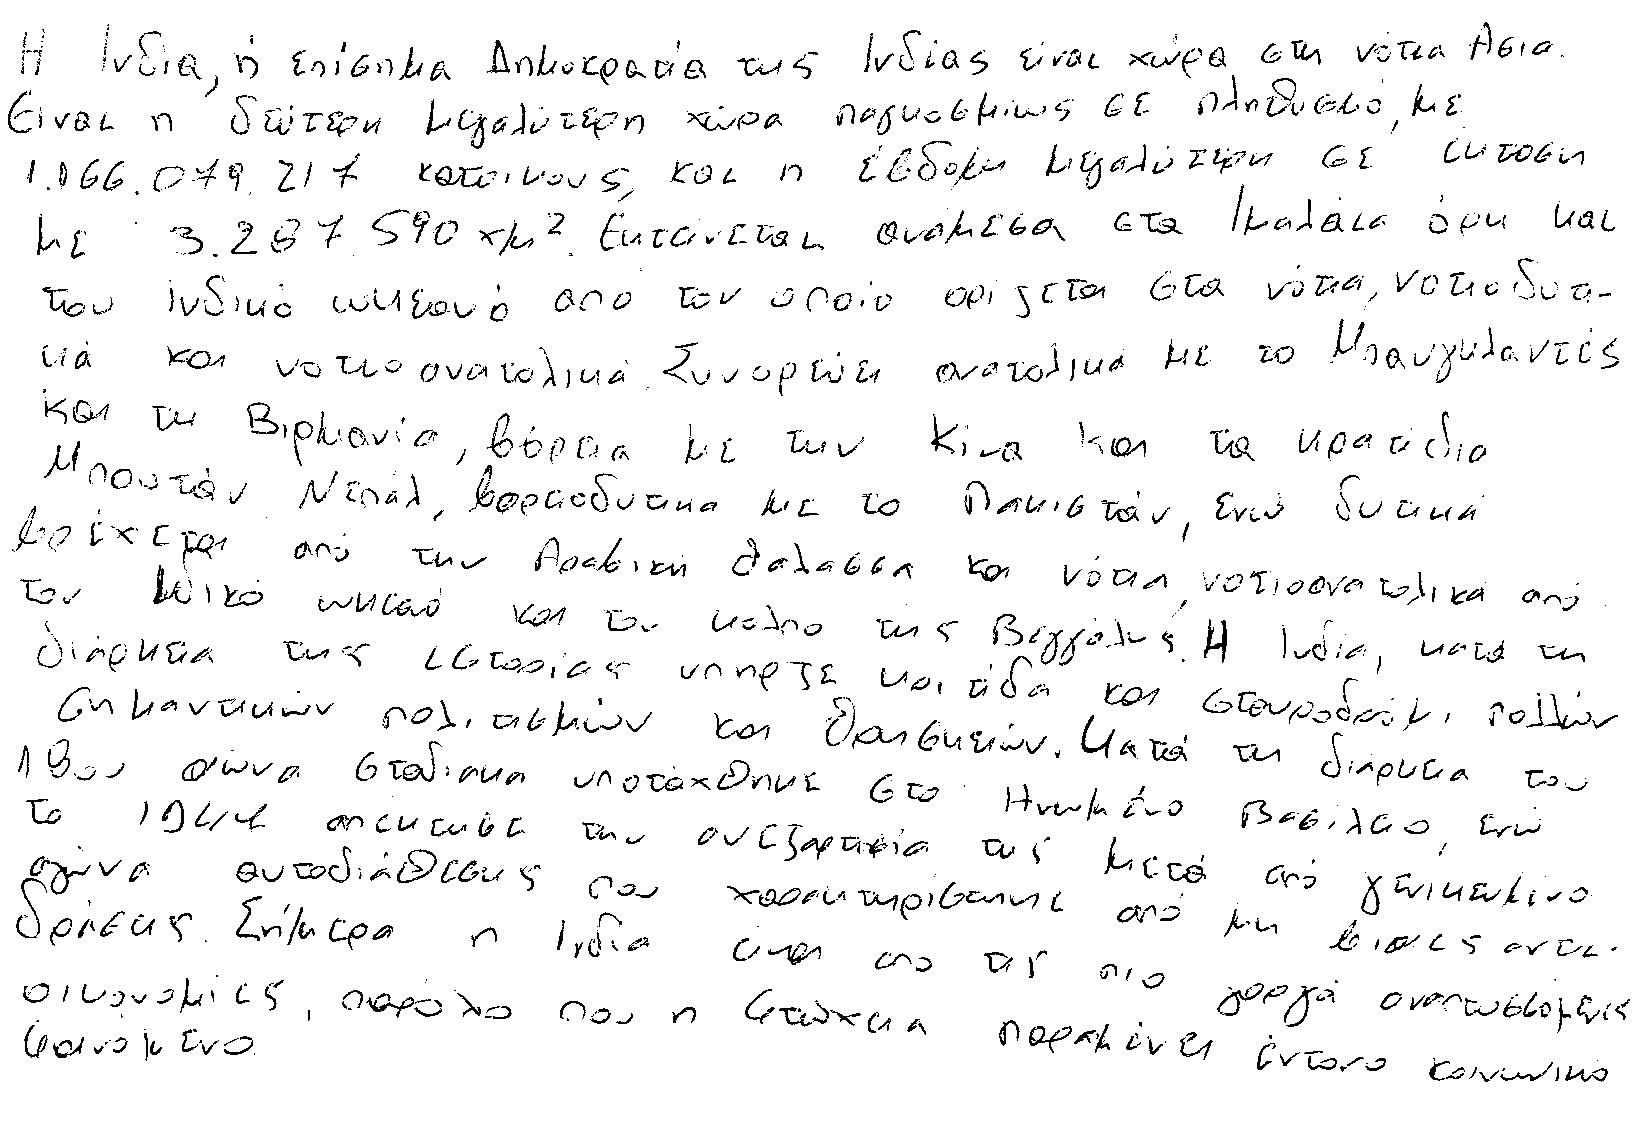 Η Ινδία, ή επίσημα Δημοκρατία της Ινδίας είναι χώρα στη νότια Ασία.
Είναι η δεύτερη μεγαλύτερη χώρα παγκοσμίως σε πληθυσμό, με
1.166.079.217 κατοίκους, και η έβδομη μεγαλύτερη σε έκταση
με 3.287.590 χμ². Εκτείνεται ανάμεσα στα Ιμαλάια όρη και
τον Ινδικό ωκεανό από τον οποίο ορίζεται στα νότια, νοτιοδυτι-
κά και νοτιοανατολικά. Συνορεύει ανατολικά με το Μπαγκλαντές
και τη Βιρμανία, βόρεια με την Κίνα και τα κρατίδια
Μπουτάν Νεπάλ, βορειοδυτικά με το Πακιστάν, ενώ δυτικά
βρέχεται από την Αραβική θάλασσα και νότια, νοτιοανατολικά από
τον Ινδικό ωκεανό και τον κόλπο της Βεγγάλης. Η Ινδία, κατά τη
διάρκεια της ιστορίας υπήρξε κοιτίδα και σταυροδρόμι πολλών
σημαντικών πολιτισμών και θρησκειών. Κατά τη διάρκεια του
19ου αιώνα σταδιακά υποτάχθηκε στο Ηνωμένο Βασίλειο, ενώ
το 1947 απέκτησε την ανεξαρτησία της μετά από γενικευμένο
αγώνα αυτοδιάθεσης που χαρακτηρίστηκε από μη βίαιες αντι-
δράσεις. Σήμερα η Ινδία είναι από τις πιο γοργά αναπτυσσόμενες
οικονομίες, παρόλο που η φτώχεια παραμένει έντονο κοινωνικό
φαινόμενο